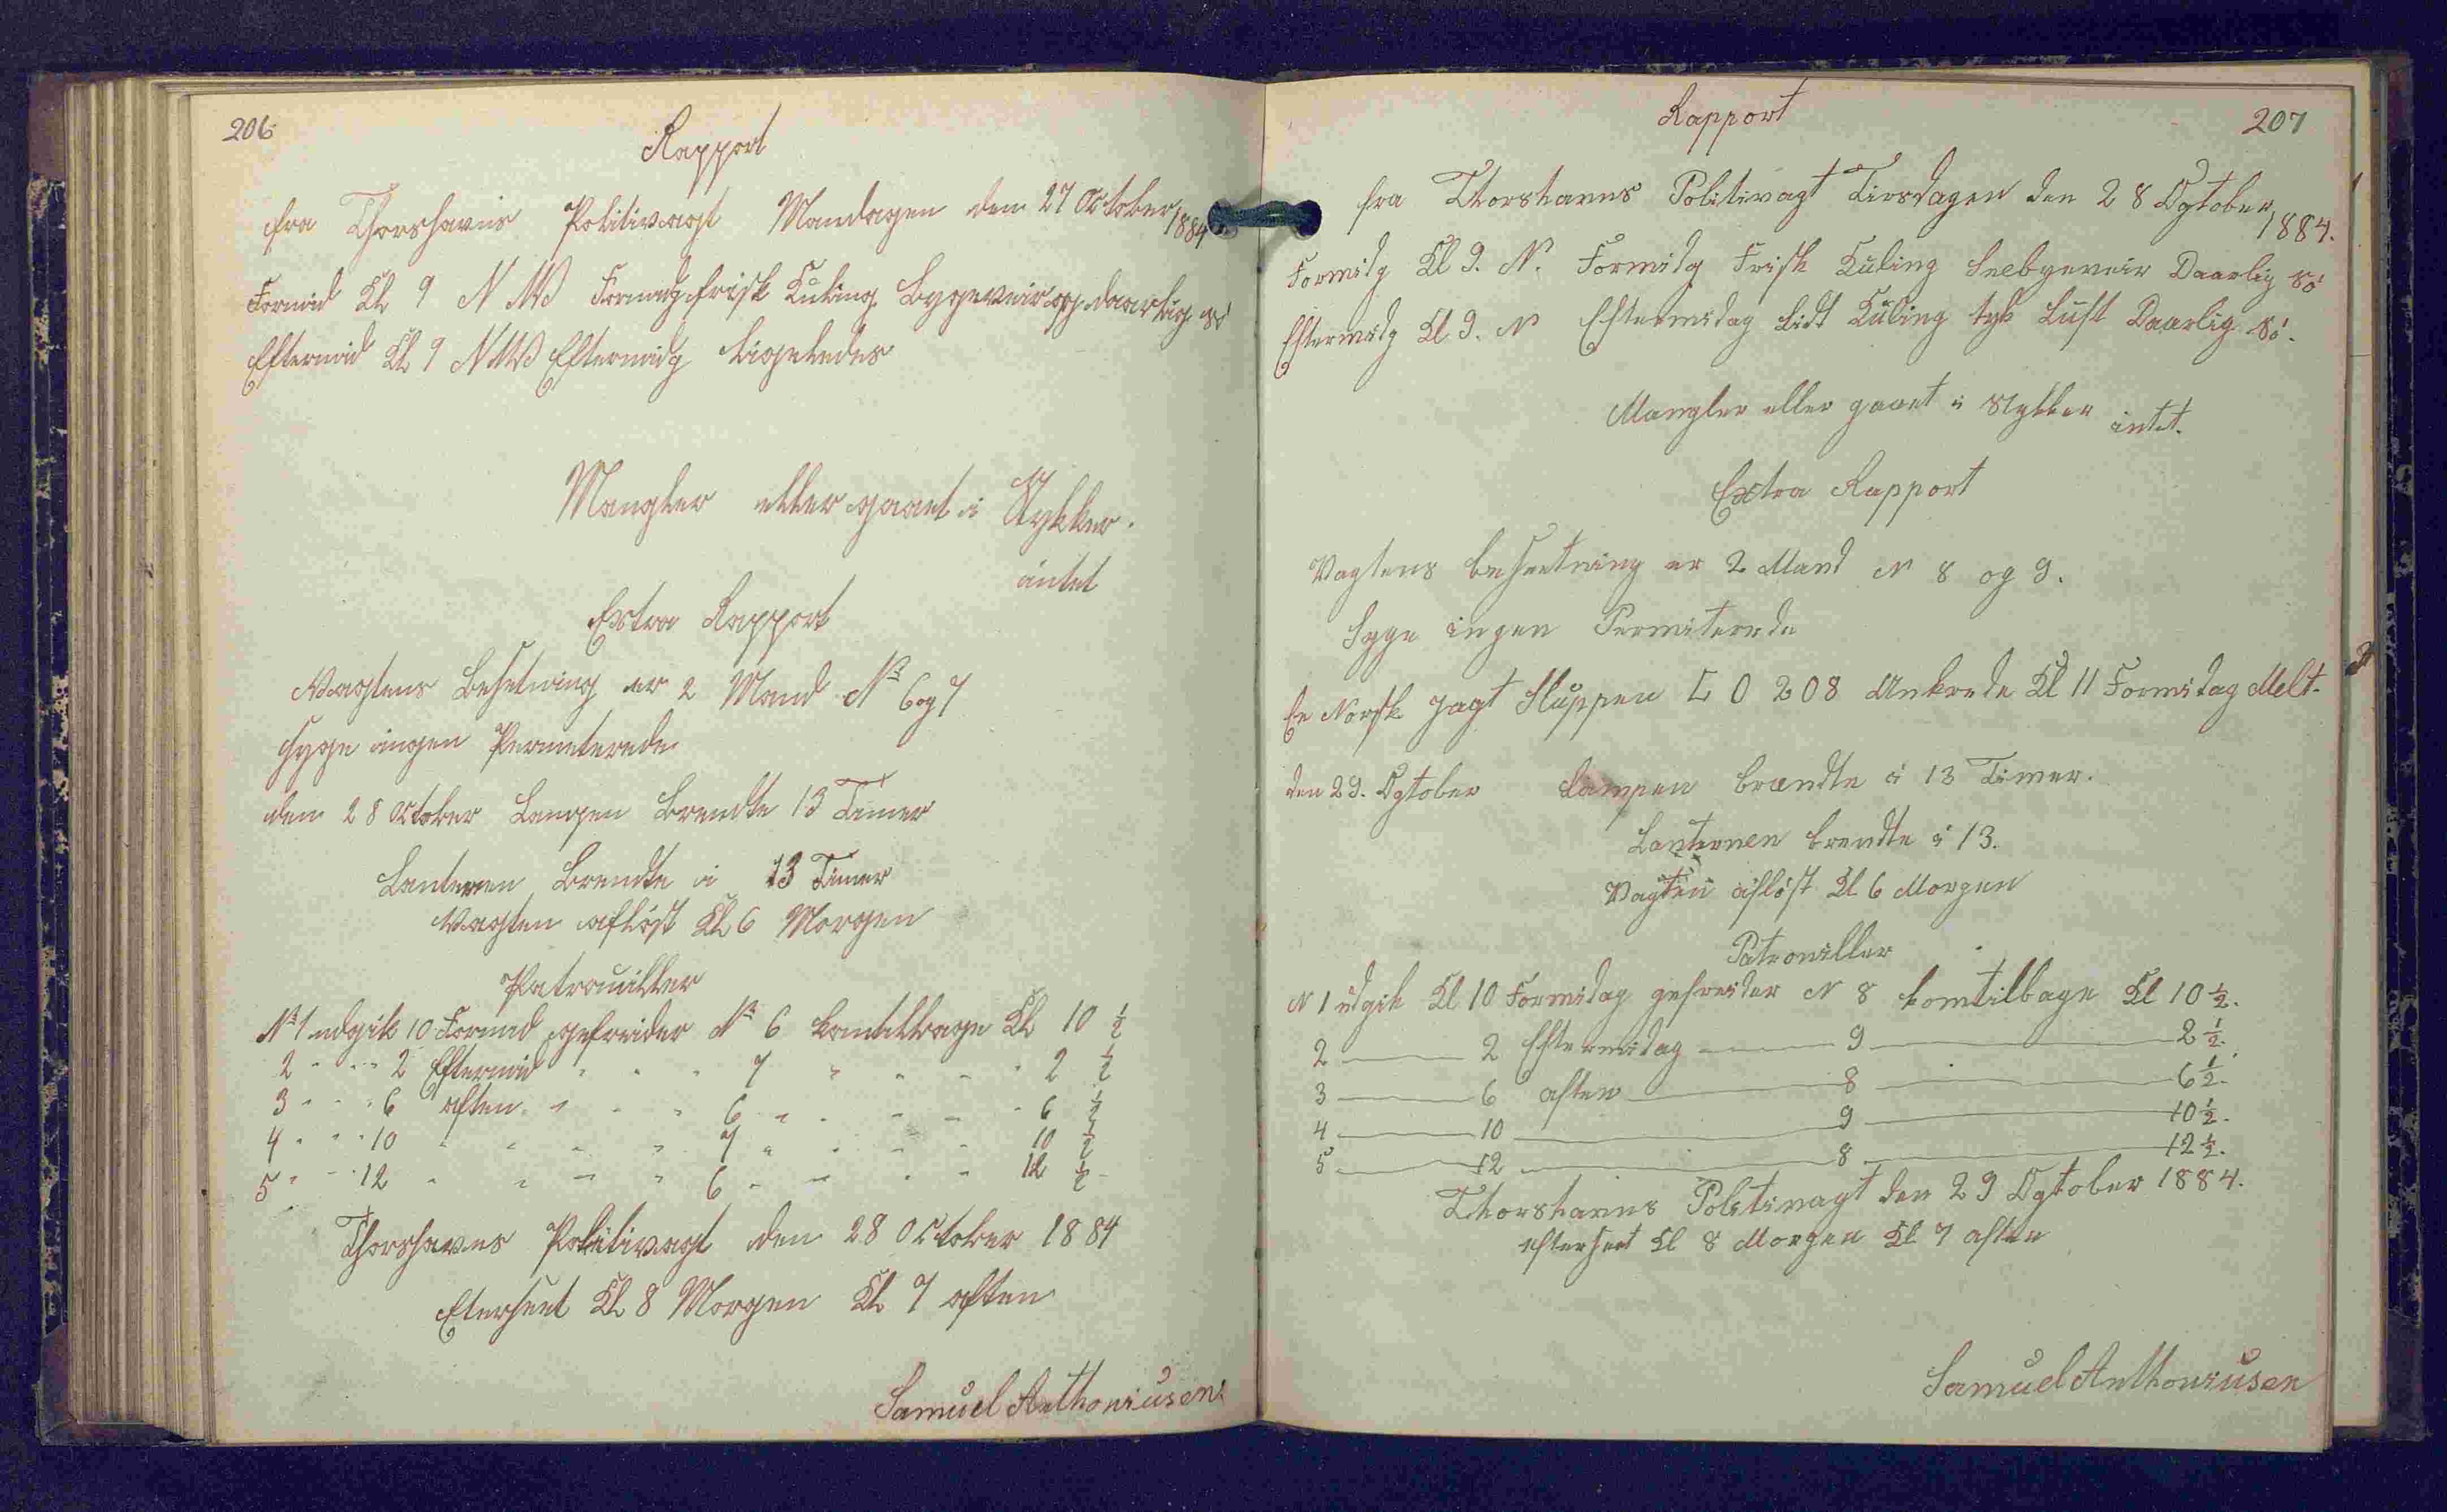 206
Rapport
fra Thorshavns Politivagt Mandagen den 27 October 1884
Formid Kl 9 N NW Formidg frisk Kuling Bygeveir og daarlig sö
Eftermid Kl 9 NNW Eftermidg ligeledes
Mangler eller gaaet i Stykker.
intet
Extra Rapport
Vagtens Besetning er 2 Mand No 6 og 7
Syge ingen Permeterede
den 28 October Lampen Brendte 13 Timer
Lanteren Brendte i 13 Timer
Vagten aflöst Kl 6 Morgen
Patrouiller
No 1 udgik 10 Formid gefreider No 6 komtilbage Kl 10 ½
2 " " " 2 Eftermid " " " 7 " " " " 2 ½
3 " " " 6 aften " " " 6 " " " " 6 ½
4 " " " 10 " " " " 7 " " " " 10 ½
5 " " " 12 " " " " 6 " " " " 12 ½
Thorshavns Politivagt den 28 October 1884
Eterseet Kl 8 Morgen Kl 7 aften
Samuel Anthoniusen
207
Rapport
fra Thorshavns Politivagt Tirsdagen den 28 Ogtober 1884.
Formidg Kl 9. N. Formidg Frisk Kuling Seebyeveir Daarlig Sö
Eftermidg Kl 9. N Eftermidag Lidt Kuling tyk Luft Daarlig Sö.
Mangler eller gaaet i Stykker intet.
Extra Rapport
Vagtens besaetning er 2 Mand N 8 og 9.
Syge ingen Permiterede
En Norsk Jagt Sluppen L O 208 Ankrede Kl 11 Formidag Melt.
den 29. Ogtober Lampen brændte i 13 Timer.
Lanternen brendte i 13.
Vagten aflöst Kl 6 Morgen
Patrouiller
N 1 udgik Kl 10 Formidag gefreider N 8 komtilbage Kl 10 ½.
2 — 2 Eftermidag — 9 — 2 ½.
3 — 6 aften — 8 — 6 ½.
4 — 10 — 9 — 10 ½.
5 — 12 — 8 — 12 ½.
Thorshavns Politivagt den 29 Ogtober 1884.
efterseet Kl 8 Morgen Kl 7 aften
Samuel Anthoniusen